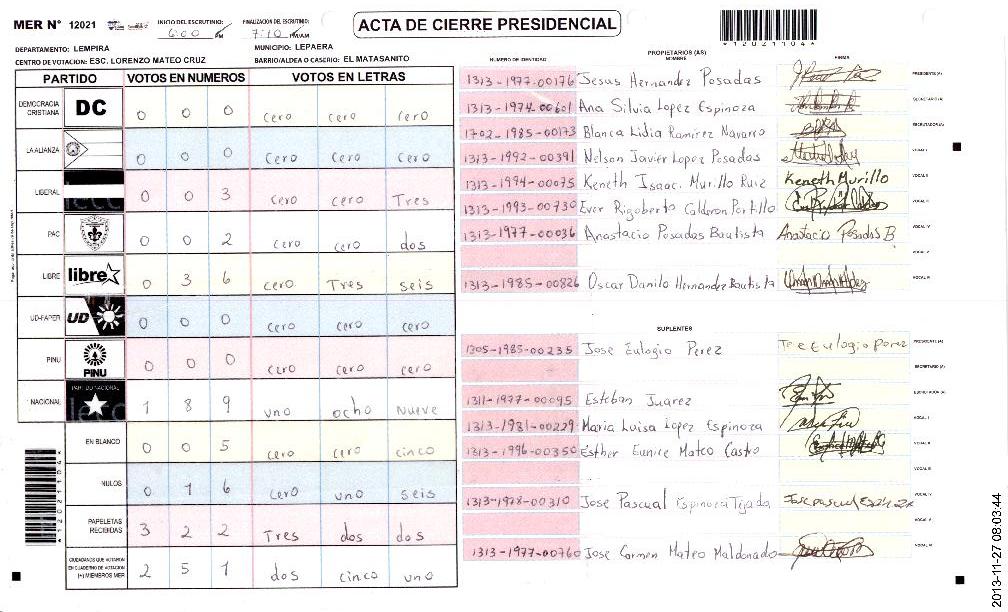 MER N° 12021
INICIO DEL ESCRUTINIO: 6:00 PM
FINALIZACION DEL ESCRUTINIO: 7:10 PM/AM
ACTA DE CIERRE PRESIDENCIAL
*12021104*
DEPARTAMENTO: LEMPIRA
MUNICIPIO: LEPAERA
CENTRO DE VOTACION: ESC. LORENZO MATEO CRUZ
BARRIO/ALDEA O CASERIO: EL MATASANITO
PARTIDO VOTOS EN NUMEROS VOTOS EN LETRAS
DEMOCRACIA CRISTIANA DC 0 0 0 cero cero cero
LA ALIANZA 0 0 0 cero cero cero
LIBERAL 0 0 3 cero cero Tres
PAC 0 0 2 cero cero dos
LIBRE libre 0 3 6 cero Tres seis
UD-FAPER UD 0 0 0 cero cero cero
PINU PINU 0 0 0 cero cero cero
NACIONAL PARTIDO NACIONAL 1 8 9 uno ocho nueve
EN BLANCO 0 0 5 cero cero cinco
NULOS 0 1 6 cero uno seis
PAPELETAS RECIBIDAS 3 2 2 Tres dos dos
CIUDADANOS QUE VOTARON EN CUADERNO DE VOTACION (+) MIEMBROS MER 2 5 1 dos cinco uno
*12021104*
PROPIETARIOS (AS)
NUMERO DE IDENTIDAD NOMBRE FIRMA
1313-1977-00176 Jesus Hernandez Posadas PRESIDENTE (A)
1313-1974-00601 Ana Silvia Lopez Espinoza SECRETARIO (A)
1702-1985-00173 Blanca Lidia Ramirez Navarro ESCRUTADOR (A)
1313-1992-00391 Nelson Javier Lopez Posadas VOCAL I
1313-1994-00075 Keneth Isaac Murillo Ruiz Keneth Murillo VOCAL II
1313-1993-00730 Ever Rigoberto Calderon Portillo VOCAL III
1313-1977-00036 Anastacio Posadas Bautista Anastacio Posadas B VOCAL IV
VOCAL V
1313-1985-00826 Oscar Danilo Hernandez Bautista VOCAL VI
SUPLENTES
1305-1985-00235 Jose Eulogio Perez PRESIDENTE (A)
SECRETARIO (A)
1311-1977-00095 Esteban Juarez ESCRUTADOR (A)
1313-1981-00229 Maria Luisa Lopez Espinoza VOCAL I
1313-1996-00350 Esther Eunice Mateo Castro VOCAL II
VOCAL III
1313-1978-00310 Jose Pascual Espinoza Tejada VOCAL IV
VOCAL V
1313-1977-00760 Jose Carmen Mateo Maldonado VOCAL VI
2013-11-27 08:03:44